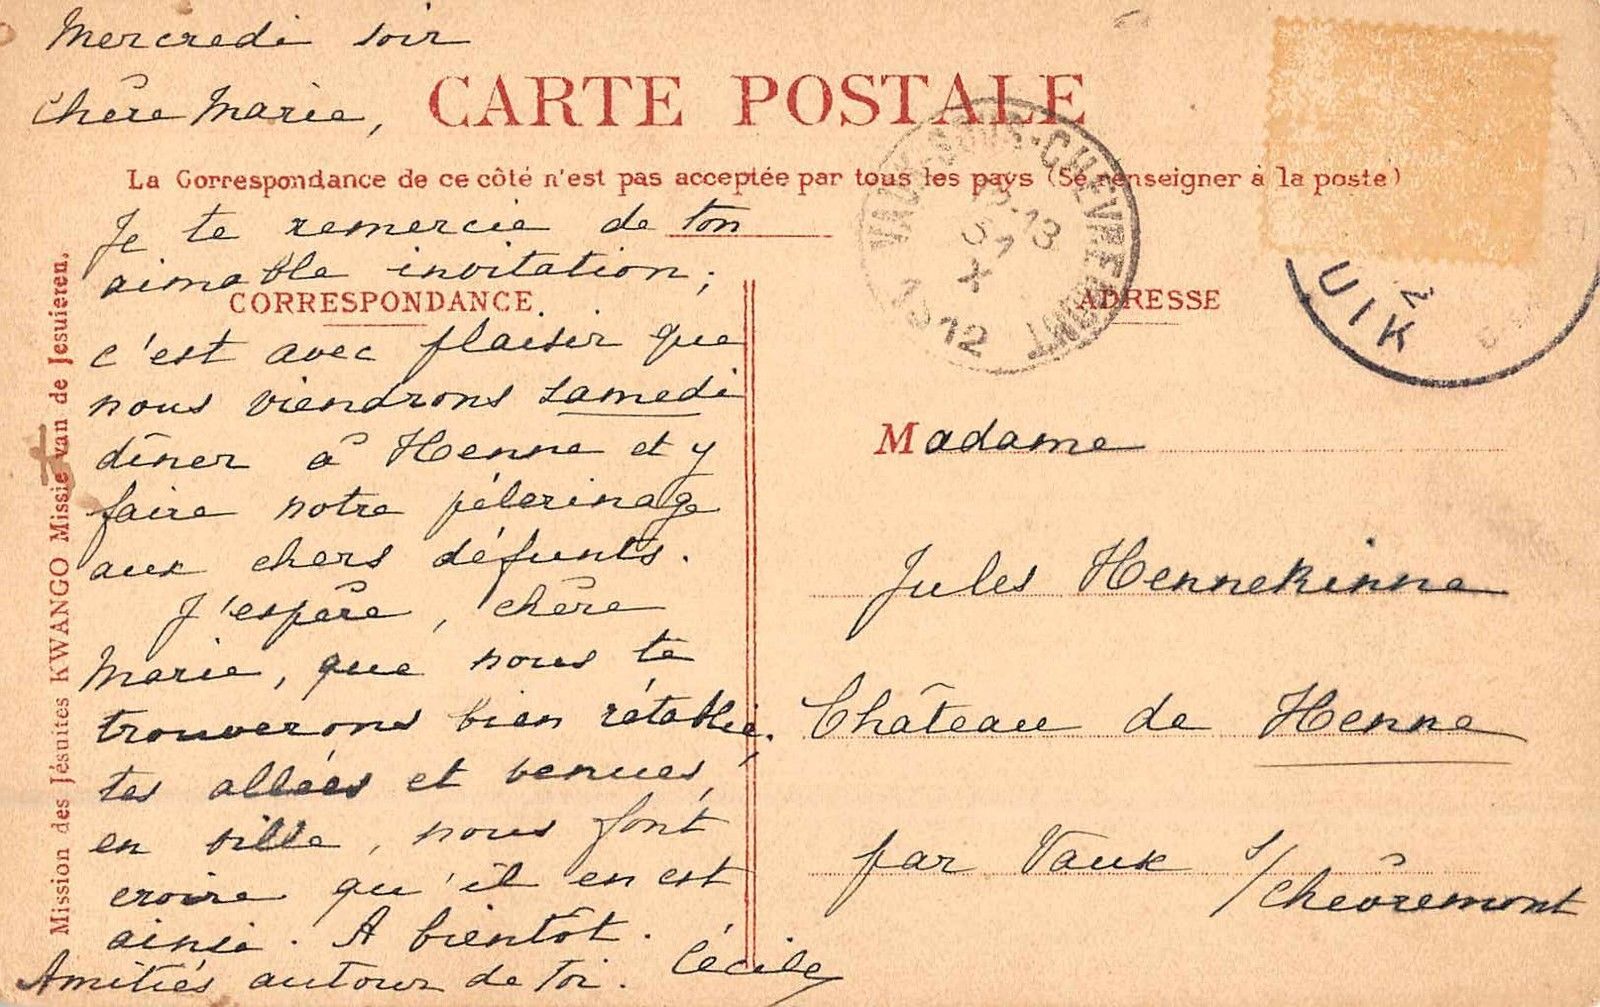 Mercredi soir
Chère Marie,
CARTE POSTALE
La Correspondance de ce côté n'est pas acceptée par tous les pays (Se renseigner à la poste)
Je te remercie de ton
aimable invitation;
CORRESPONDANCE
c'est avec plaisir que
nous viendrons samedi
dîner à Henne et y
faire notre pèlerinage
aux chers défunts.
J'espère, chère
Marie, que nous te
trouverons bien rétablie.
tes allées et venues,
en ville, nous font
croire qu'il en est
ainsi. A bientôt.
Amitiés autour de toi. Cécile
Mission des Jésuites KWANGO Missie van de Jesuieren.
VAUX-SOUS-CHEVREMONT
12-13
31
X
1912
ADRESSE
UIK
2
Madame
Jules Hennekinne
Château de Henne
par Vaux s/Chèvremont